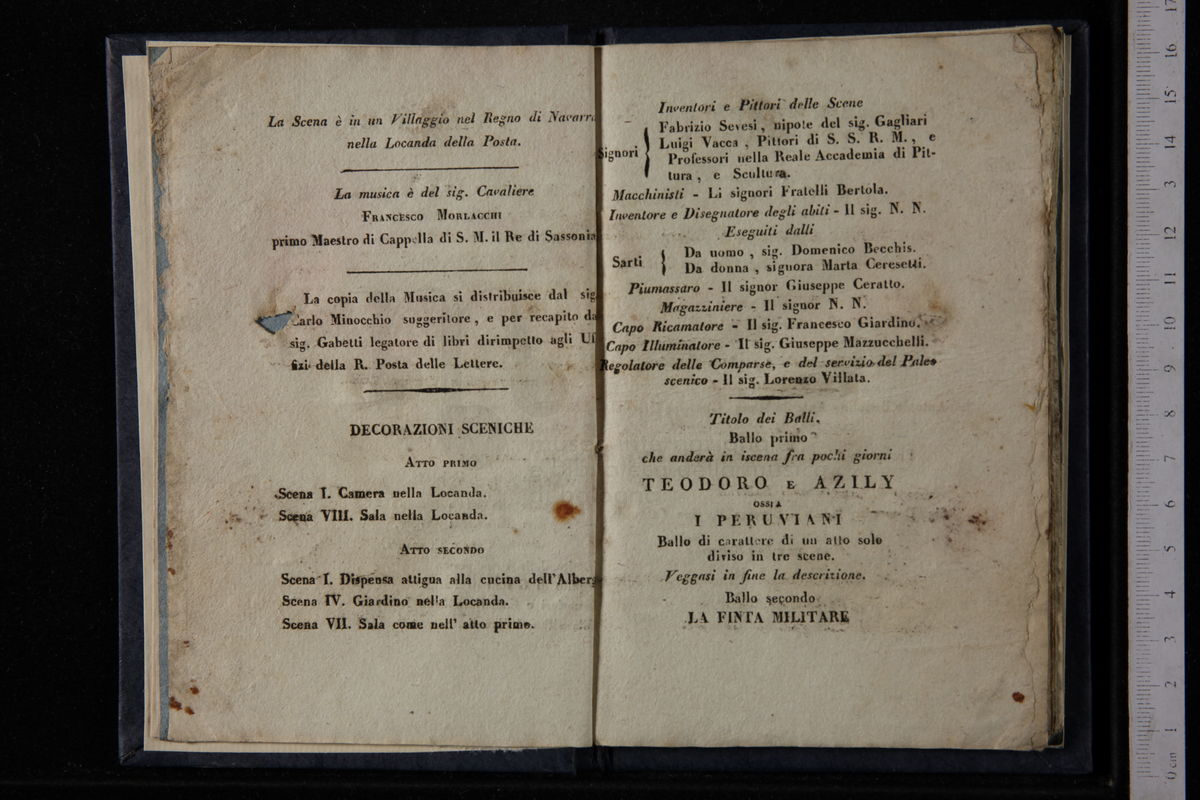 La Scena è in un Villaggio nel Regno di Navarra
nella Locanda della Posta.
La musica è del sig. Cavaliere
FRANCESCO MORLACCHI
primo Maestro di Cappella di S. M. il Re di Sassonia
La copia della Musica si distribuisce dal sig.
Carlo Minocchio suggeritore, e per recapito da
sig. Gabetti legatore di libri dirimpetto agli Uf
fizi della R. Posta delle Lettere.
DECORAZIONI SCENICHE
ATTO PRIMO
Scena I. Camera nella Locanda.
Scena VIII. Sala nella Locanda.
ATTO SECONDO
Scena I. Dispensa attigua alla cucina dell'Alberg
Scena IV. Giardino nella Locanda.
Scena VII. Sala come nell' atto primo.
Inventori e Pittori delle Scene
Signori { Fabrizio Sevesi, nipote del sig. Gagliari
Luigi Vacca, Pittori di S. S. R. M., e
Professori nella Reale Accademia di Pit-
tura, e Scultura.
Macchinisti - Li signori Fratelli Bertola.
Inventore e Disegnatore degli abiti - Il sig. N. N.
Eseguiti dalli
Sarti { Da uomo, sig. Domenico Becchis.
Da donna, signora Marta Ceresetti.
Piumassaro - Il signor Giuseppe Ceratto.
Magazziniere - Il signor N. N.
Capo Ricamatore - Il sig. Francesco Giardino.
Capo Illuminatore - Il sig. Giuseppe Mazzucchelli.
Regolatore delle Comparse, e del servizio del Palco
scenico - Il sig. Lorenzo Villata.
Titolo dei Balli.
Ballo primo
che anderà in iscena fra pochi giorni
TEODORO E AZILY
OSSIA
I PERUVIANI
Ballo di carattere di un atto solo
diviso in tre scene.
Veggasi in fine la descrizione.
Ballo secondo
LA FINTA MILITARE
0 cm 1 2 3 4 5 6 7 8 9 10 11 12 13 14 15 16 17